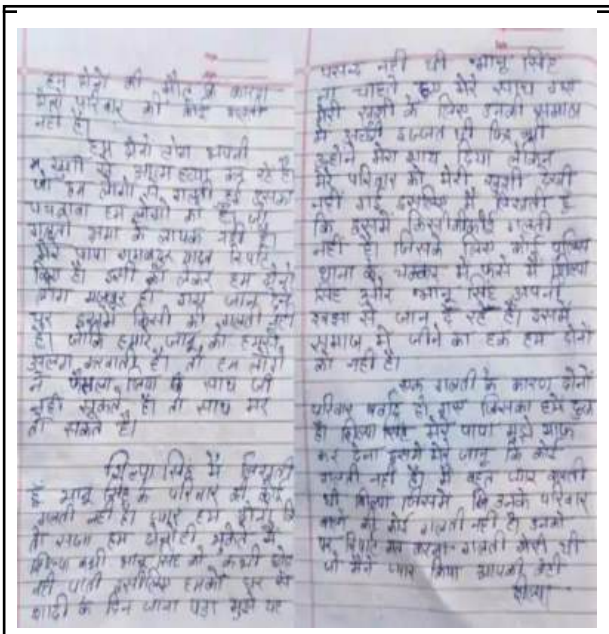 हम दोनों की मौत के कारण
मेरा परिवार की कोई गलती
नहीं है।
हम दोनों लोग अपनी
खुशी से आत्महत्या कर रहे हैं
जो हम लोगों से गलती हुई इसका
पछतावा हम लोगों को है। जो
गलती क्षमा के लायक नहीं है।
मेरे पापा रिपोर्ट
किए है। इसी को लेकर हम दोनों
लोग मजबूर हो गए जान देने
पर इसमें किसी की गलती नहीं
है। हमारे जानू को हमसे
अलग करवाती है। तो हम लोगों
ने फैसला लिया कि साथ जी
नहीं सकते हैं तो साथ मर
तो सकते हैं।
शिल्पा सिंह मैं लिखती
हूँ भानू सिंह के परिवार की कोई
गलती नहीं है। प्यार हम दोनों किए
तो सजा हम दोनों ही भुगते मैं
शिल्पा कभी भानू सिंह को कभी छोड़
नहीं पाती इसीलिए हमको घर से
शादी के दिन जाना पड़ा मुझे यह
पसन्द नहीं थी भानू सिंह
ना चाहते हुए मेरे साथ गए
मेरी खुशी के लिए उनकी समाज
में अच्छी इज्जत थी फिर भी
उन्होंने मेरा साथ दिया लेकिन
मेरे परिवार को मेरी खुशी देखी
नहीं गई इसलिए मैं लिखती हूँ
कि इसमें किसी की कोई गलती
नहीं है जिसके लिए कोई पुलिस
थाना के चक्कर में फसे मैं शिल्पा
सिंह और भानू सिंह अपनी
इच्छा से जान दे रहे हैं। इसमें
समाज में जीने का हक हम दोनों
को नहीं है।
एक गलती के कारण दोनों
परिवार बर्बाद हो गए जिसका हमें दुख
है शिल्पा सिंह मेरे पापा मुझे माफ
कर देना इसमें मेरे जानू कि कोई
गलती नहीं है। मैं बहुत प्यार करती
थी शिल्पा जिसमें कि उनके परिवार
वाले की कोई गलती नहीं है। उनके
पर रिपोर्ट मत करना गलती मेरी थी
जो मैंने प्यार किया आपकी बेटी
शिल्पा